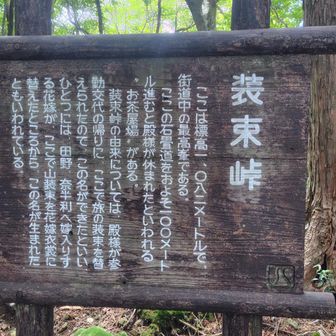 装束峠
ここは標高一、〇八二メートルで、
街道中の最高峯である。
ここの石畳道をおよそ一〇〇メート
ル進むと殿様が休まれたといわれる
“お茶屋場”がある。
装束峠の由来については、殿様が参
勤交代の帰りに、ここで旅の装束を替
えられたので、この名ができたといい、
ひとつには、田野、奈半利へ嫁入りす
る花嫁が、ここで山装束を花嫁衣裳に
替えたところから、この名が生まれた
ともいわれている。